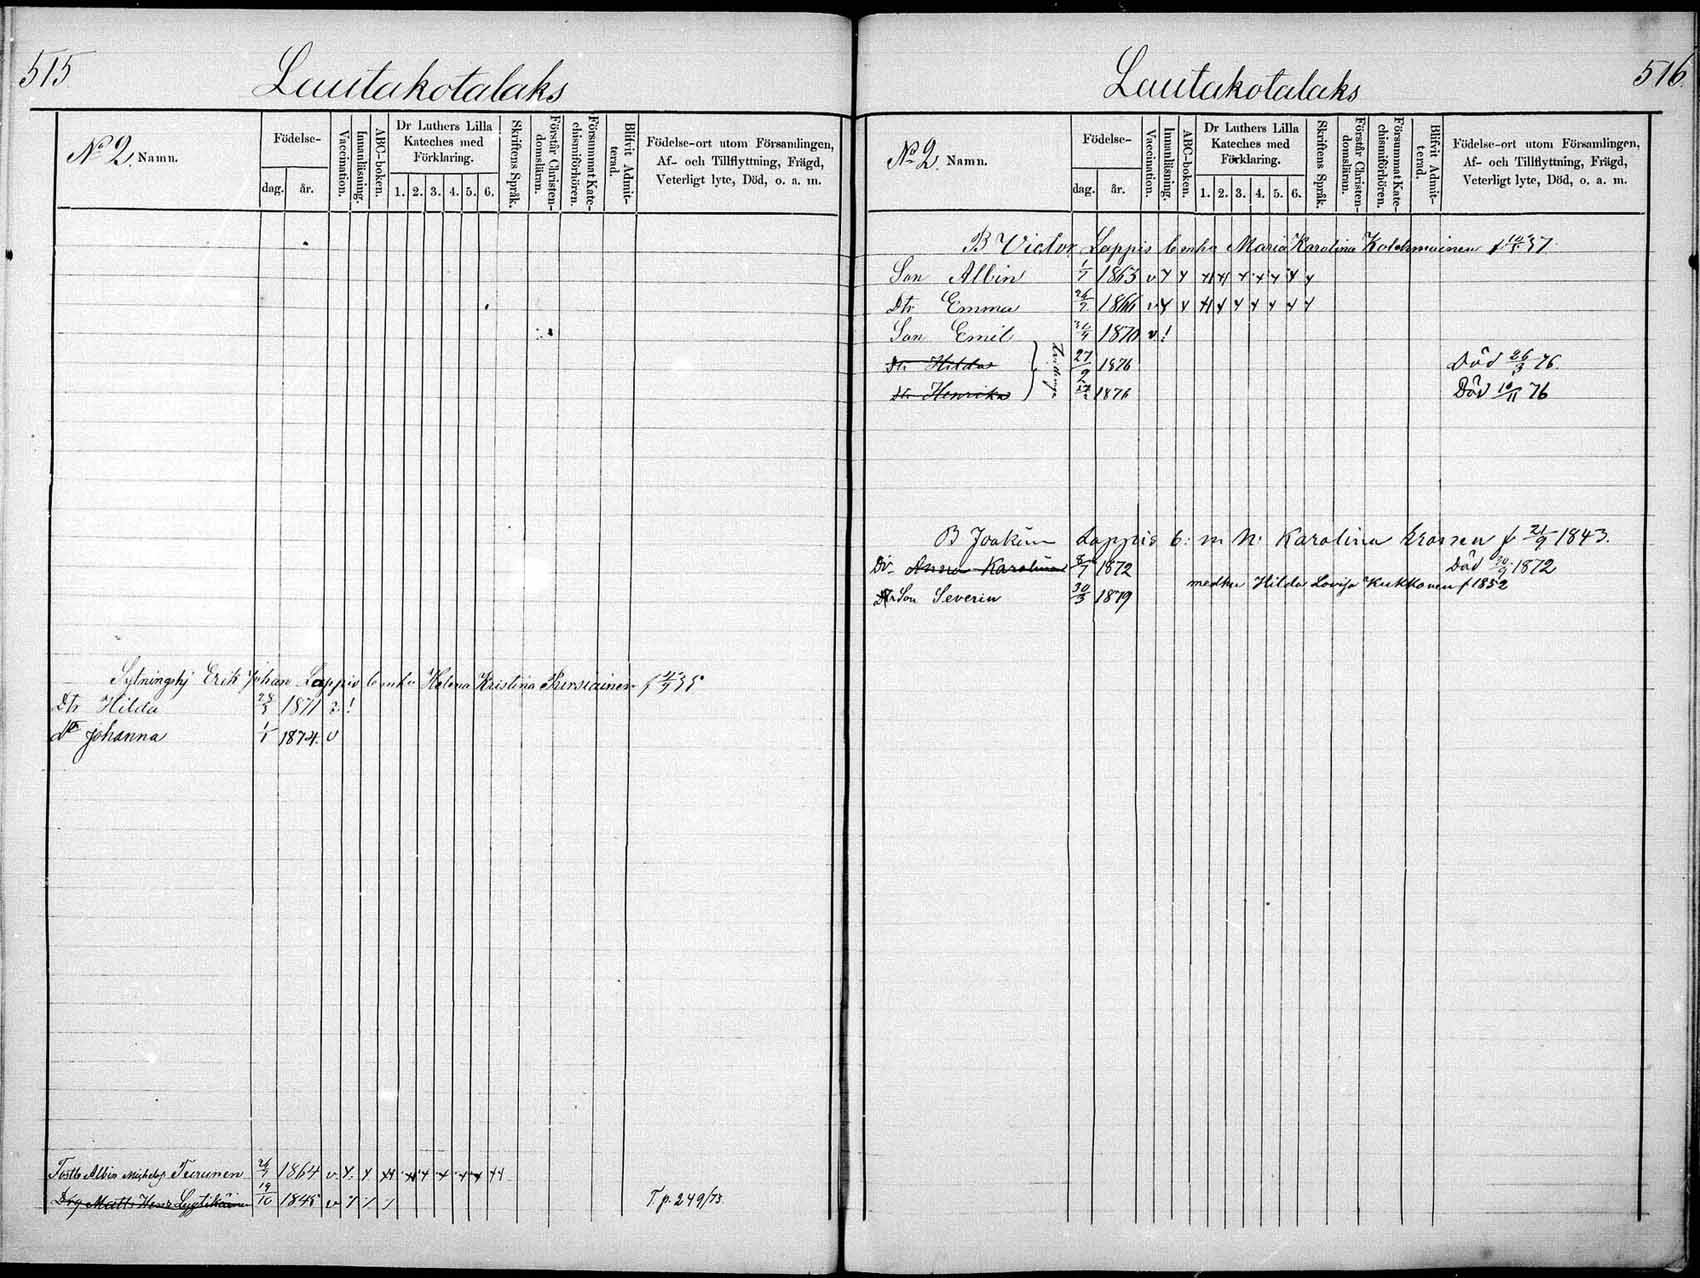 515
Lautakotalaks
No 2. Namn.
Födelse-
dag. år.
Vaccination.
Innanläsning.
ABC-boken.
Dr Luthers Lilla
Kateches med
Förklaring.
1. 2. 3. 4. 5. 6.
Skriftens Språk.
Förstår Christen-
domsläran.
Försummat Kate-
chismiförhören.
Blifvit Admit-
terad.
Födelse-ort utom Församlingen,
Af- och Tillflyttning, Frägd,
Veterligt lyte, Död, o. a. m.
Sytningshj Erik Johan Lappis Helena Kristina
Dtr Hilda 1871 !
Dtr Johanna 1/1 1874. v
Albin Teirunen 1864 v
Matts Henr Lyytikäinen 19/10 1845 v T. p. 249/73.
516.
Lautakotalaks
No 2. Namn.
Födelse-
dag. år.
Vaccination.
Innanläsning.
ABC-boken.
Dr Luthers Lilla
Kateches med
Förklaring.
1. 2. 3. 4. 5. 6.
Skriftens Språk.
Förstår Christen-
domsläran.
Försummat Kate-
chismiförhören.
Blifvit Admit-
terad.
Födelse-ort utom Församlingen,
Af- och Tillflyttning, Frägd,
Veterligt lyte, Död, o. a. m.
B Victor Lappis enka Maria Karolina Kolehmainen f 37.
Son Albin 1/7 1863 v
Dtr Emma 1866 v
Son Emil 1870 v !
Dtr Hilda 27/2 1876 Död 26/3 76.
Dtr Henrika 27/2 1876 Död 10/11 76
B Joakim Lappis e: m h: Karolina f 21/9 1843.
Dr Anna Karolina 8/7 1872 Död 20/9 1872
med hu Hilda Lovisa Kukkonen f 1852
Son Severin 30/3 1879